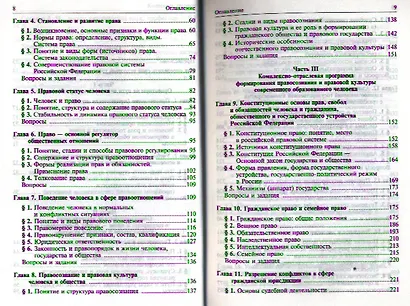 8 Оглавление
Глава 4. Становление и развитие права 60
§ 1. Возникновение, основные признаки и функции права 60
§ 2. Нормы права: определение, структура, виды.
Система права 65
§ 3. Понятие и виды форм (источников) права.
Система законодательства 74
§ 4. Совершенствование правовой системы
Российской Федерации 79
Вопросы и задания 81
Глава 5. Правовой статус человека 82
§ 1. Человек и право 82
§ 2. Понятие, структура и содержание правового статуса
§ 3. Стабильность и динамика правового статуса человека 93
Вопросы 94
Глава 6. Право — основной регулятор
общественных отношений 95
§ 1. Понятие, стадии и способы правового регулирования 95
§ 2. Содержание и структура правоотношения
§ 3. Формы реализации прав и обязанностей.
Применение права 102
§ 4. Толкование права 105
Вопросы 109
Глава 7. Поведение человека в сфере правоотношений 109
§ 1. Поведение человека в нормальных
и конфликтных ситуациях 110
§ 2. Понятие и виды правового поведения 114
§ 3. Правомерное поведение 116
§ 4. Правонарушение: признаки, состав, квалификация 121
§ 5. Юридическая ответственность 127
§ 6. Законность и правопорядок в жизни человека,
государства и общества 134
Вопросы и задания 136
Глава 8. Правосознание и правовая культура
человека и общества 136
§ 1. Понятие и структура правосознания 137
Оглавление 9
§ 2. Стадии и виды правосознания 138
§ 3. Правовая культура и ее роль в формировании
гражданского общества и правового государства 141
§ 4. Исторические особенности
отечественного правосознания и правовой культуры 148
Вопросы и задания 151
Часть III
Комплексно-отраслевая программа
формирования правосознания и правовой культуры
современного образованного человека
Глава 9. Конституционные основы прав, свобод
и обязанностей человека и гражданина,
общественного и государственного устройства
Российской Федерации 152
§ 1. Конституционное право: понятие, место
в российской правовой системе 152
§ 2. Источники конституционного права
§ 3. Конституция Российской Федерации —
Основной закон государства и общества 158
§ 4. Форма правления, форма государственного
устройства, государственно-политический режим
в России 164
§ 5. Механизм (аппарат) государства
Вопросы и задания 174
Глава 10. Гражданское право и семейное право
§ 1. Гражданское право: общие положения
§ 2. Вещное право
§ 3. Обязательственное право
§ 4. Наследственное право
§ 5. Интеллектуальная собственность
§ 6. Семейное право 215
Вопросы и задания 220
Глава 11. Разрешение конфликтов в сфере
гражданской юрисдикции 221
§ 1. Основы судебной деятельности 221